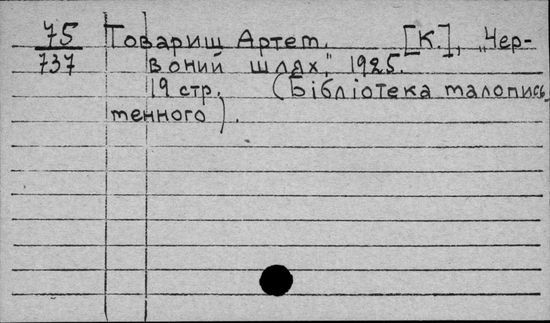 75 Товариш Артем. [К.], „Чер-
737 воний шлях," 1925.
19 стр. (Бібліотека малопись
менного).